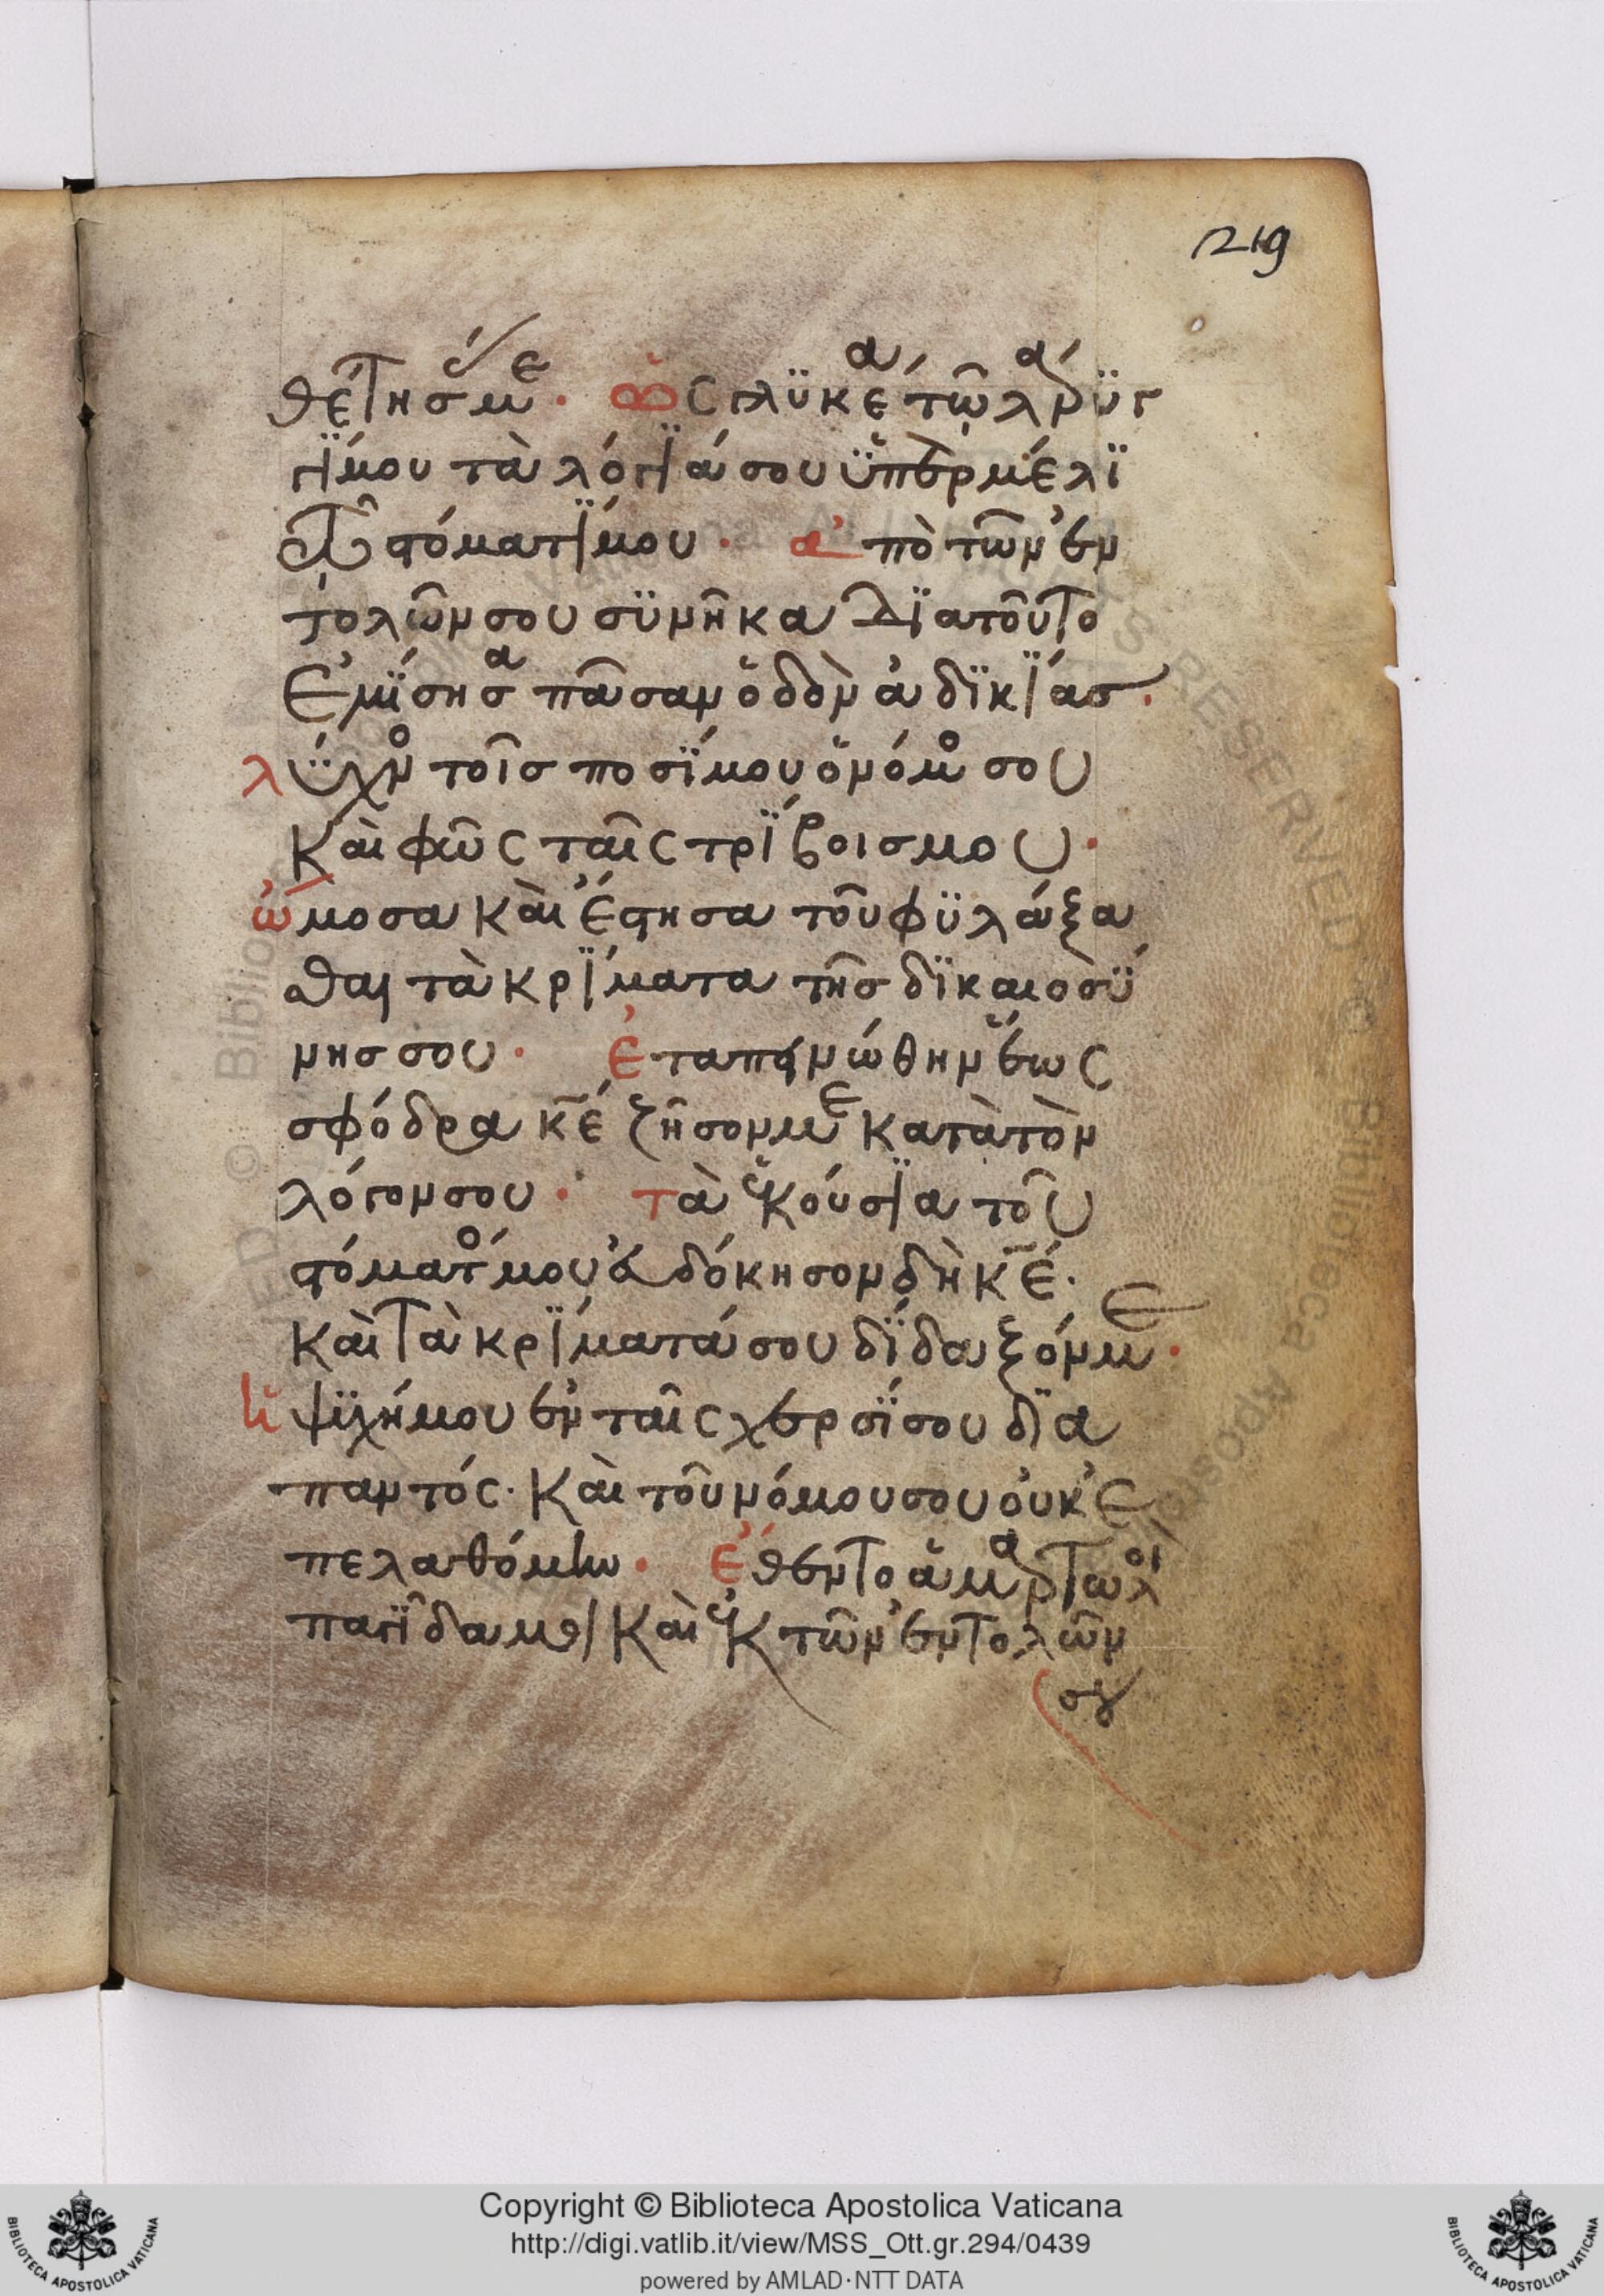 219
θέτησάς με· Ὡς γλυκέα τῷ λάρυγ
γί μου τὰ λόγϊά σου ὑπὲρ μέλϊ
τῷ στόματί μου· ἀπὸ τῶν ἐν
τολῶν σου συνῆκα διὰ τοῦτο
ἐμίσησα πᾶσαν ὁδὸν ἀδϊκίας·
λύχνος τοῖς ποσΐ μου ὁ νόμος σου
καὶ φῶς ταῖς τρίβοις μου·
ὤμοσα καὶ ἔστησα τοῦ φυλάξα
σθαι τὰ κρίματα τῆς δϊκαιοσύ
νης σου· ἐταπεινώθην ἕως
σφόδρα κ̅ε̅ ζῆσόν με κατὰ τὸν
λόγον σου· τὰ ἑκούσϊα τοῦ
στόματός μου εὐδόκησον δὴ κ̅ε̅·
καὶ τὰ κρίματά σου δίδαξόν με·
ἡ ψυχή μου ἐν ταῖς χερσΐ σου δϊα
παντός· καὶ τοῦ νόμου σου οὐκ ἐ
πελαθόμην· ἔθεντο ἁμαρτωλοὶ
παγΐδα μοι καὶ ἐκ τῶν ἐντολῶν
σου
Copyright © Biblioteca Apostolica Vaticana
http://digi.vatlib.it/view/MSS_Ott.gr.294/0439
powered by AMLAD·NTT DATA
BIBLIOTECA APOSTOLICA VATICANA
BIBLIOTECA APOSTOLICA VATICANA